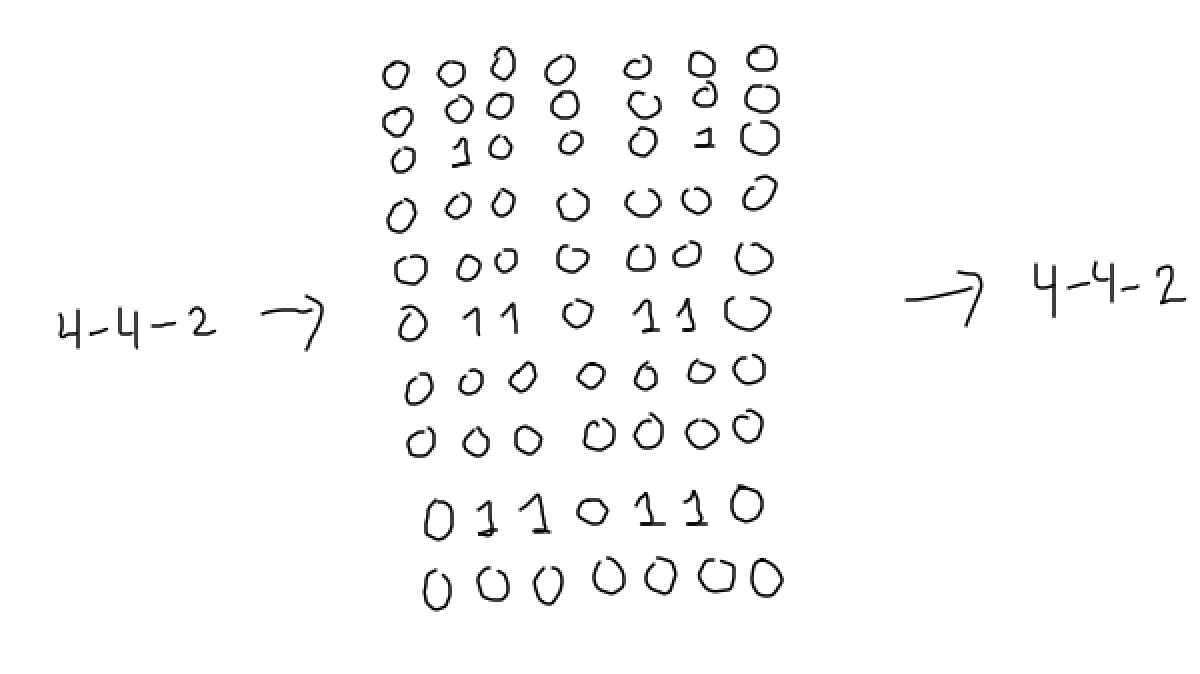 0 0 0 0 0 0 0
0 0 0 0 0 0 0
0 1 0 0 0 1 0
0 0 0 0 0 0 0
0 0 0 0 0 0 0
4-4-2 → 0 1 1 0 1 1 0 → 4-4-2
0 0 0 0 0 0 0
0 0 0 0 0 0 0
0 1 1 0 1 1 0
0 0 0 0 0 0 0